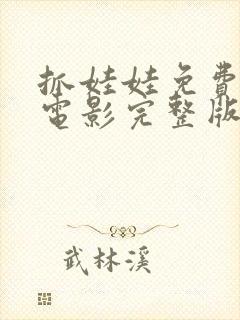 抓娃娃免費
電影完整版
武林溪